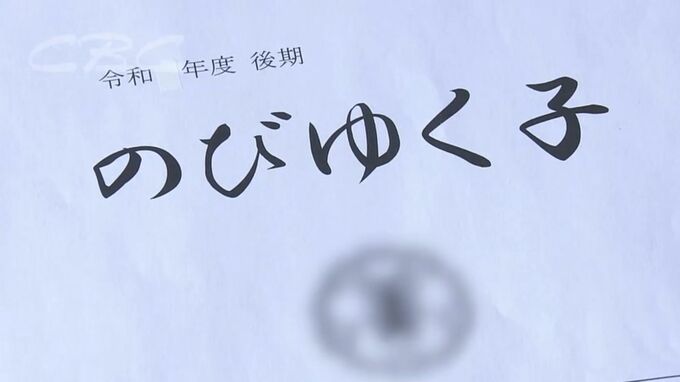 CBC
令和 年度 後期
のびゆく子